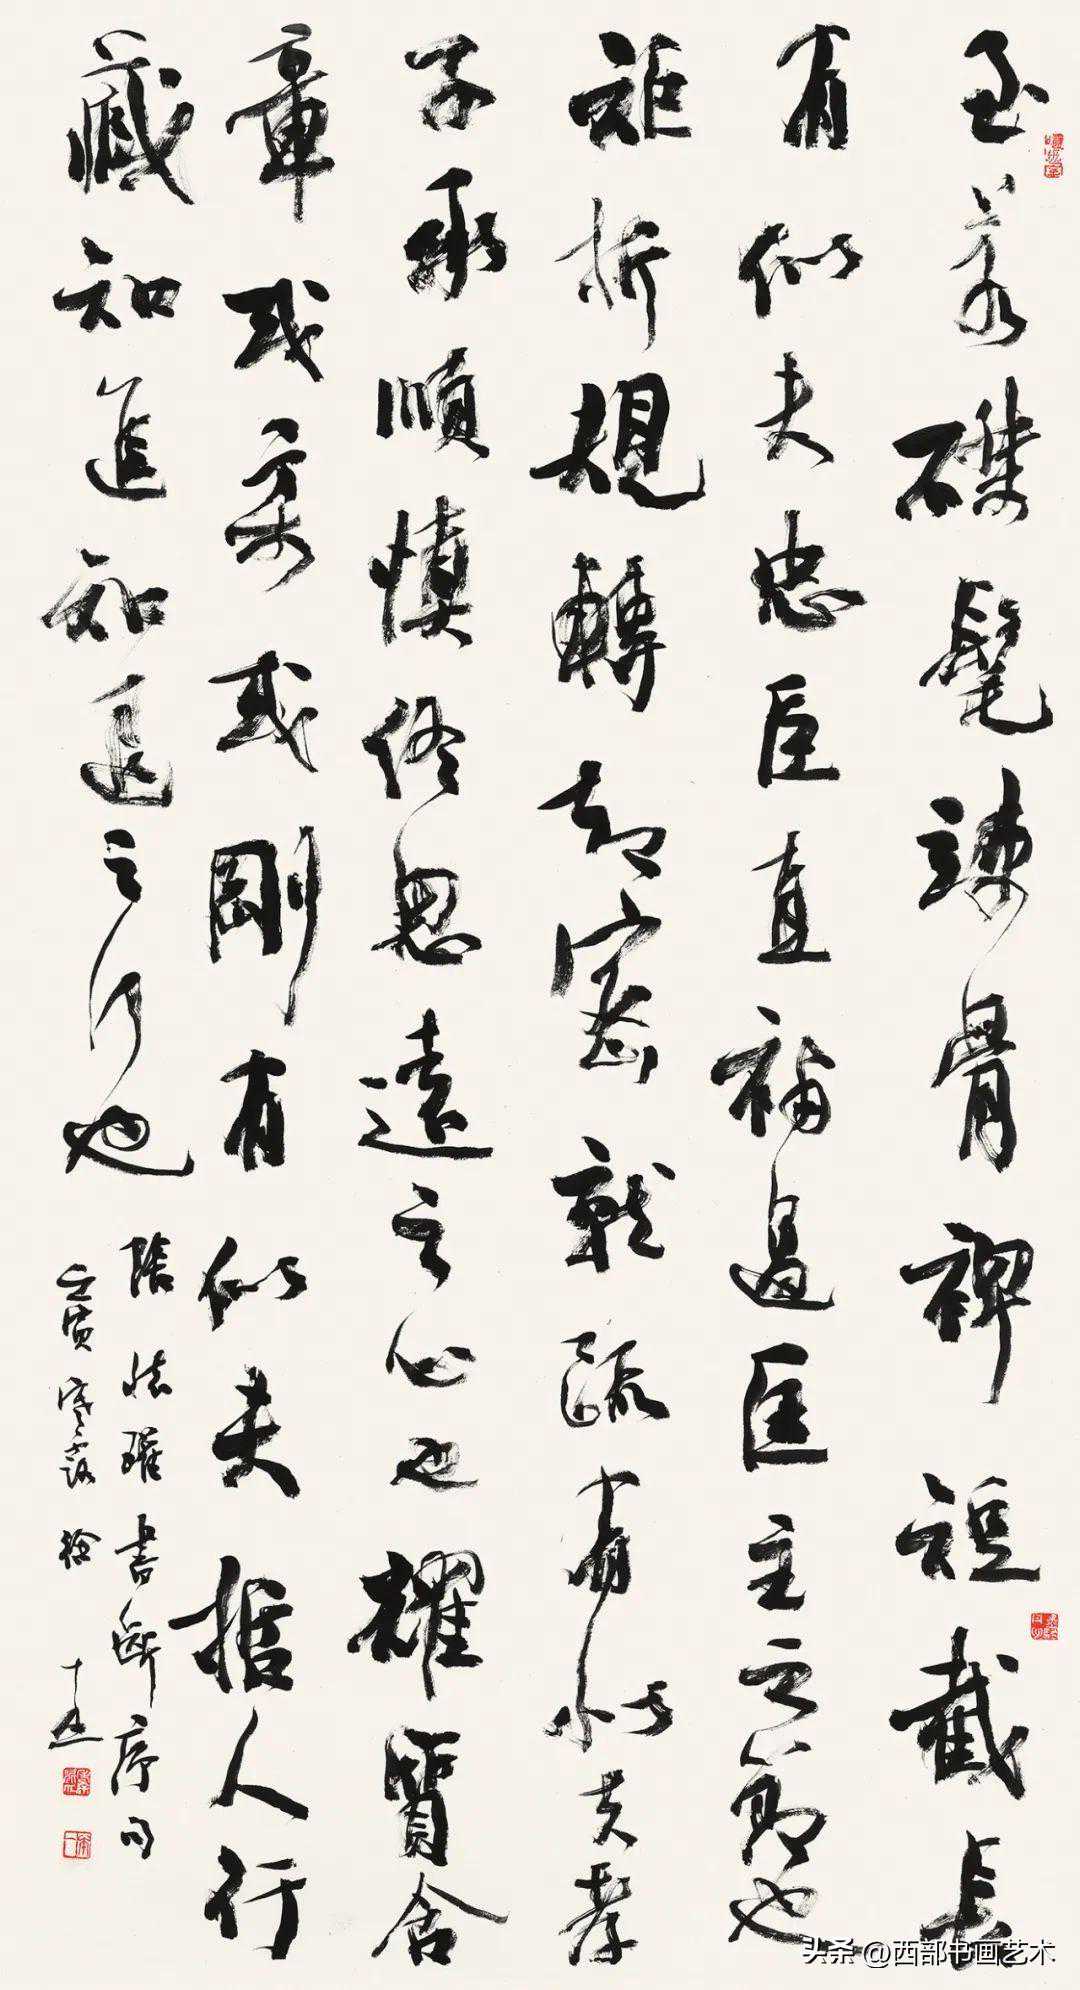 至若磔髦竦骨裨短截長
有似夫忠臣直補過匡主之節也
矩折規轉却密就疏有似夫孝
子承順慎終思遠之心也耀質含
章或柔或剛有似夫哲人行
藏知進知退之行也
張懷瓘書斷序句
壬寅寒露徐
头条 @西部书画艺术